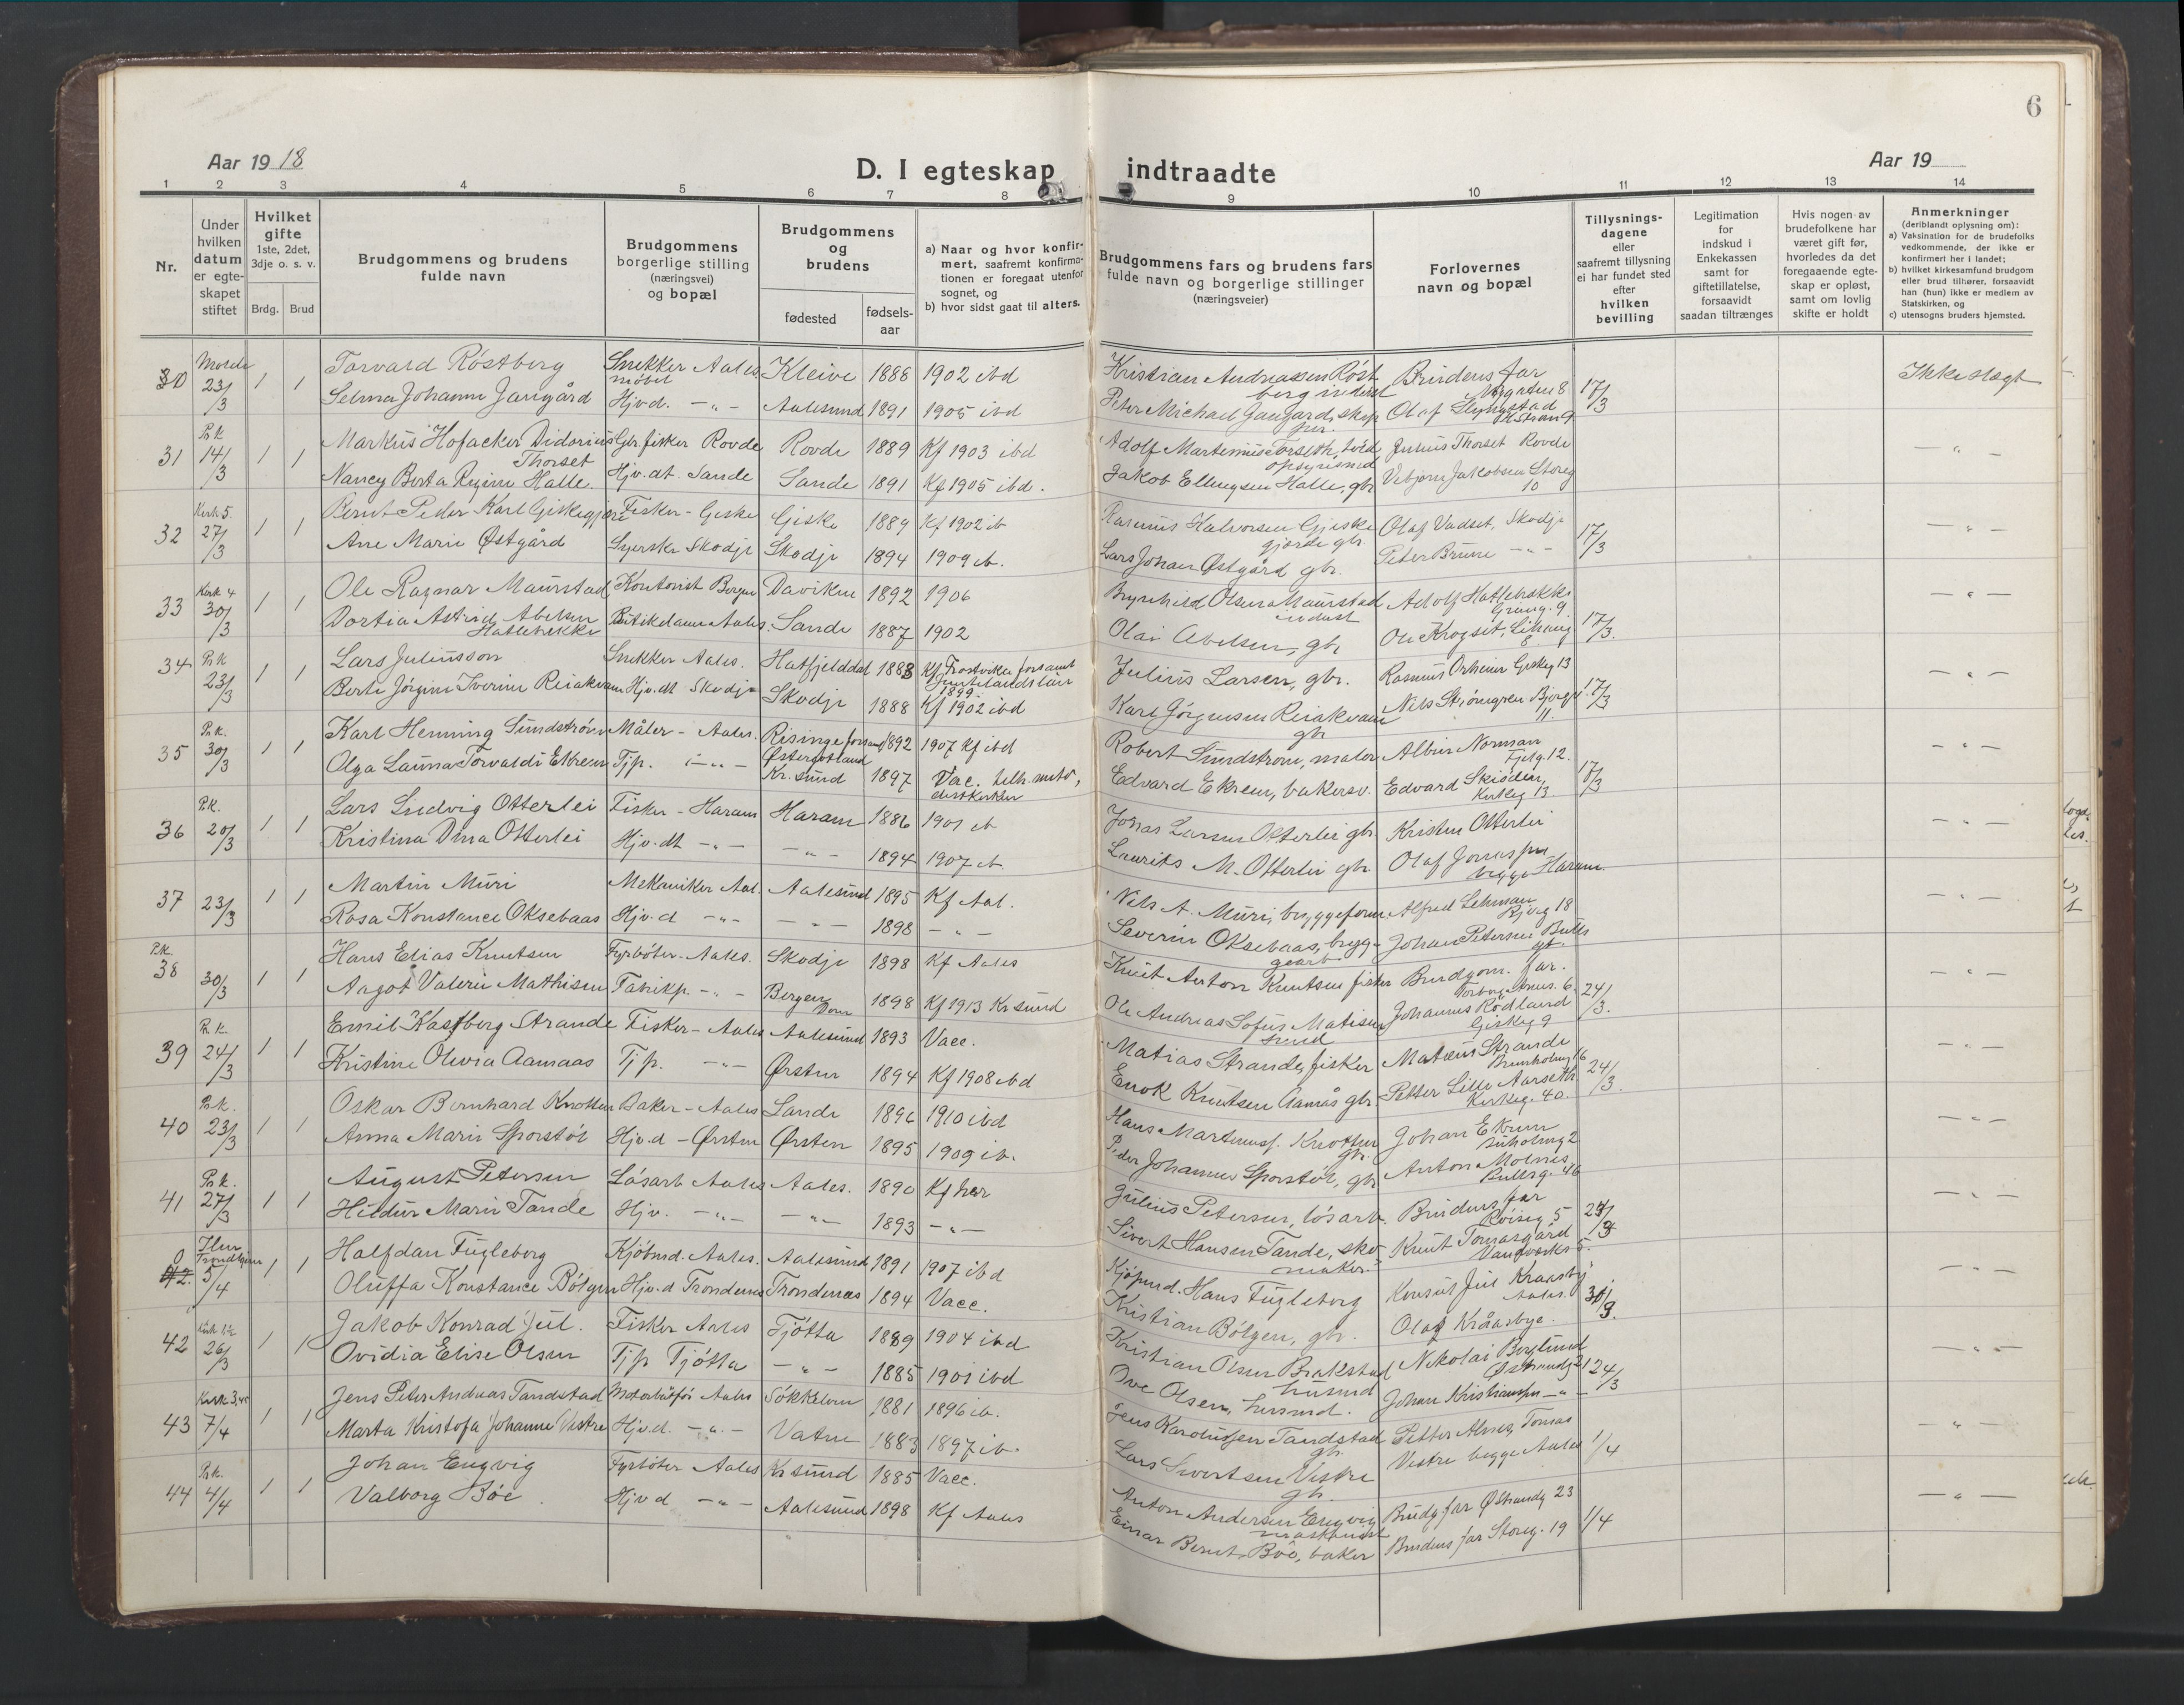 6
Aar 1918
D. I egteskap indtraadte
Aar 19
1 2 3 4 5 6 7 8 9 10 11 12 13 14
Nr.
Under hvilken datum er egteskapet stiftet
Hvilket gifte 1ste, 2det, 3dje o. s. v.
Brdg. Brud
Brudgommens og brudens fulde navn
Brudgommens borgerlige stilling (næringsvei) og bopæl
Brudgommens og brudens
fødested
fødselsaar
a) Naar og hvor konfirmert, saafremt konfirmationen er foregaat utenfor sognet, og
b) hvor sidst gaat til alters.
Brudgommens fars og brudens fars fulde navn og borgerlige stillinger (næringsveier)
Forlovernes navn og bopæl
Tillysningsdagene eller saafremt tillysning ei har fundet sted efter hvilken bevilling
Legitimation for indskud i Enkekassen samt for giftetillatelse, forsaavidt saadan tiltrænges
Hvis nogen av brudefolkene har været gift før, hvorledes da det foregaaende egteskap er opløst, samt om lovlig skifte er holdt
Anmerkninger (deriblandt oplysning om):
a) Vaksination for de brudefolks vedkommende, der ikke er konfirmert her i landet;
b) hvilket kirkesamfund brudgom eller brud tilhører, forsaavidt han (hun) ikke er medlem av Statskirken, og
c) utensogns bruders hjemsted.
30 Molde 23/3 1 1 Torvald Röstberg Snekker Aales. Kleive 1888 1902 ibd Kristian Andreassen Röstberg inderst Brudens far 17/3 Ikke slegt
møbel
Selma Johanne Jangård Hjv.d. -"- Aalesund 1891 1905 ibd Peter Michael Jangård, Olaf Slyngstad
31 P.k 14/3 1 1 Markus Hofacker Didorius Thorset Gbr. fisker Rovde Rovde 1889 Kf 1903 ibd Adolf Martinius Julius Thorset Rovde -"-
Nancy Berta Regine Halle. Hjv. dt. Sande Sande 1891 Kf 1905 ibd. Jakob Ellingsen Halle, gbr Jakobsen Storeg 10
32 Kirk 5. 27/3 1 1 Bernt Peder Karl Giskegjære Fisker - Giske Giske 1889 Kf 1902 ib Rasmus Halvorsen Gjiskegjerde gbr Olaf Vadset, Skodje 17/3 -"-
Ane Marie Østgård Syerske Skodje Skodje 1894 1909 ib. Lars Johan Østgård gbr. Peter Brune -"-
33 Kirk 4 30/3 1 1 Ole Ragnar Maurstad Kontorist Bergen Daviken 1892 1906 Brynhild Olsen Maurstad Adolf Hatlebakk 17/3. -"-
Dortia Astrid Abelsen Hatlebakke Butikdame Aales. Sande 1887 1902 Olai Abelsen, gbr Ole Krogset,
34 P.k 23/3 1 1 Lars Juliusson Snekker Aales. Hatfjelddal 1883 Kf Frostviken 1899 Julius Larsen, gbr. Rasmus Giskeg 13 17/3 -"-
Berte Jörgine Iverine Reiakvam Hjv.dt Skodje Skodje 1888 Kf 1902 ibd Karl Jörgensen Reiakvam gbr Nils Strömgren 11.
35 P.k. 30/3 1 1 Karl Henning Sundström Maler - Aales. Risinge Östergötland 1892 1907 Kf ibd Robert Sundström, maler Albin Norman 12. 17/3 -"-
Olga Launa Torvaldi Ekrem Tjp. -"- Kr.sund 1897 Vac. Edvard Ekrem, bakersv. Edvard Kirkeg 13.
36 P.k. 20/3 1 1 Lars Ludvig Otterlei Fisker - Haram Haram 1886 1901 ib Jonas Larsen Otterlei gbr. Kristen Otterlei -"-
Kristina Dina Otterlei Hjv.dt -"- -"- 1894 1907 ib. Laurits M. Otterlei gbr. Olaf begge Haram
37 23/3 1 1 Martin Muri Mekaniker Aal. Aalesund 1895 Kf Aal. Nils A. Muri, bryggeform Alfred Lehman 18 -"-
Rosa Konstance Oksebaas Hjv.d -"- -"- 1898 -"- Severin Oksebaas, bryggearb Johan Petersen
38 P.k. 30/3 1 1 Hans Elias Knutsen Fyrböter - Aales. Skodje 1898 Kf Aales Knut Anton Knutsen fisker Brudgom. far. 24/3. -"-
Aagot Valerie Mathisen Fabrikp. -"- Bergen Dom 1898 Kf 1913 Kr sund Ole Andreas Sofus Matisen smed Johannes Rödland Giskeg 9
39 P.k. 24/3 1 1 Emil Kastberg Strande Fisker - Aales Aalesund 1893 Vacc. Matias Strande, fisker Mateus Strande 24/3.
Kristine Olivia Aamaas Tjp. -"- Ørsten 1894 Kf 1908 ibd Enok Knutsen Aamås gbr. Petter Lille Aarseth Kirkeg. 40.
40 P.k. 23/3 1 1 Oskar Bernhard Knotten Baker - Aales Sande 1896 1910 ibd Hans Knotten gbr. Johan Ekrem -"-
Anna Marie Sporstöl Hjv.d - Ørsten Ørsten 1895 1909 ib. Peder Johannes Sporstöl, gbr Anton Molnes 46
41 P.k. 27/3 1 1 August Petersen Lösarb Aales Aales. 1890 Kf her Julius Petersen, lösarb. Brudens far 24/3 -"-
Hildur Marie Tande Hjv. -"- -"- 1893 -"- Sivert Hansen Tande, skomaker. Knut Tomasgård
0 Ilen Trondhjem 5/4 1 1 Halfdan Fugleborg Kjöbmd. Aales. Aalesund 1891 1907 ibd Kjöpmd. Hans Fugleborg Konsul Jul Kraasby Aales. -"-
Oluffa Konstance Bölgen Hjv.d Trondenes Trondenes 1894 Vacc. Kristian Bölgen, gbr. Olaf Kråasbye.
42 26/3 1 1 Jakob Konrad Jul. Fisker Aales Tjötta 1889 1904 ibd Kristian Olsen Brakstad husmd Nikolai Berglund 24/3 -"-
Ovidia Elise Olsen Tjp Tjötta -"- 1885 1901 ibd Ove Olsen, husmd. Johan Kristiansen -"-
43 Kirk 3,45 7/4 1 1 Jens Peter Andreas Tandstad Motorbåtför Aales Sökkelven 1881 1896 ib. Jens Karolussen Tandstad gbr. Petter Alnes, Tomas 1/4 -"-
Marta Kristofa Johanne Vestre Hjv.d. -"- Vatne 1883 1897 ib. Lars Sivertsen Vestre gbr. Vestre begge Aales
44 P.k. 4/4 1 1 Johan Engvig Fyrböter Aales Kr sund 1885 Vacc. Anton Andersen Engvig maskinist Brudg. far Østrandg 23 1/4 -"-
Valborg Böe Hjv.d -"- Aalesund 1898 Kf Aales Einar Bernt Böe, baker Brudens far Storeg. 19